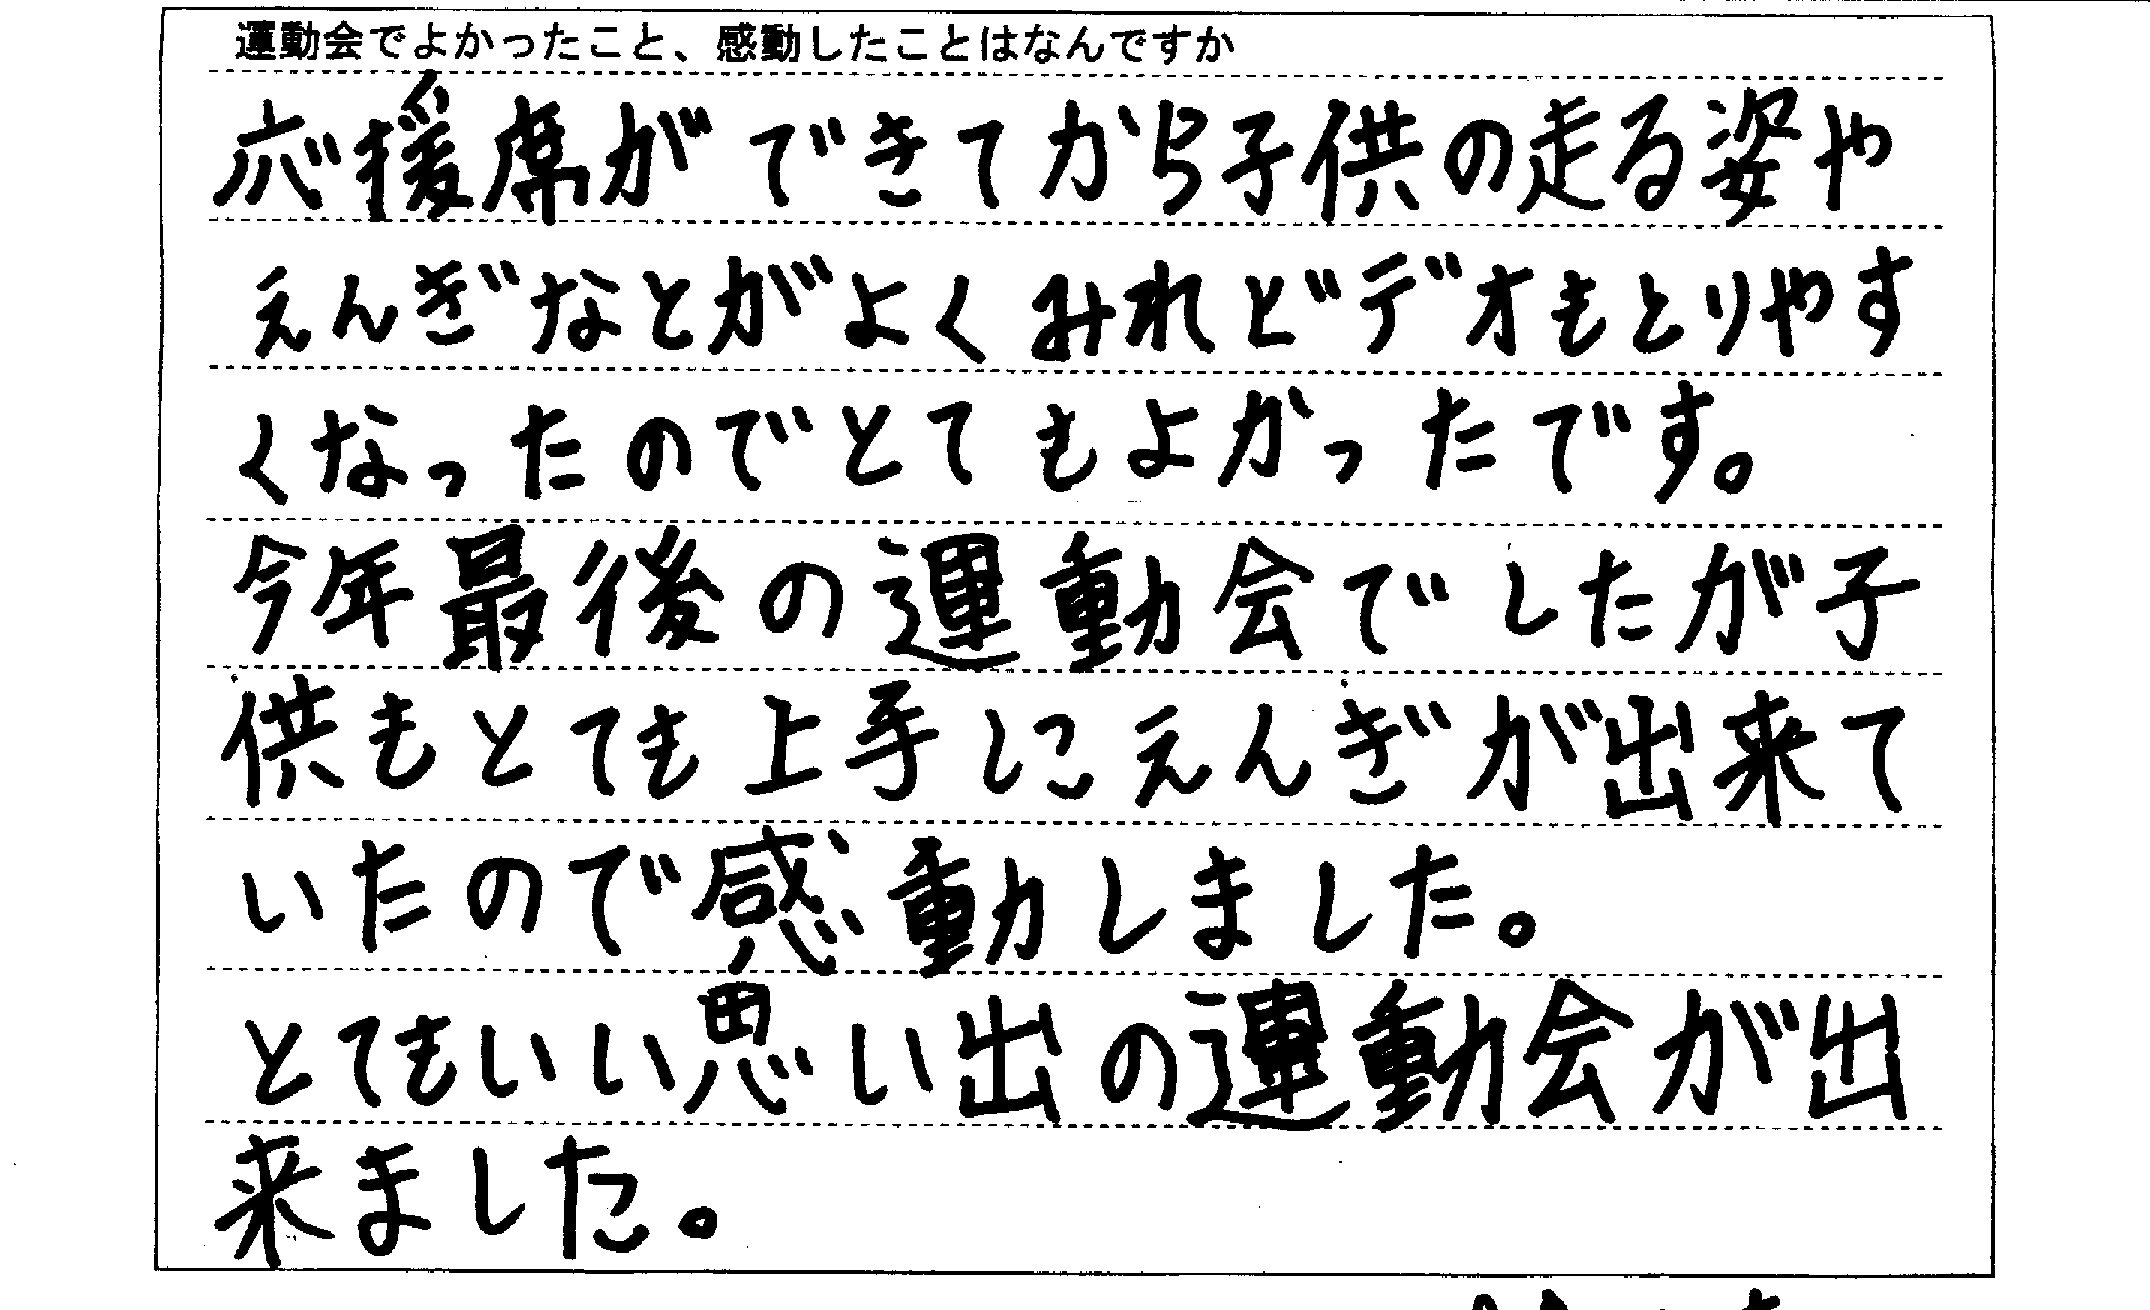 運動会でよかったこと、感動したことはなんですか
応援席ができてから子供の走る姿や
えんぎなとがよくみれビデオもとりやす
くなったのでとてもよかったです。
今年最後の運動会でしたが子
供もとても上手にえんぎが出来て
いたので感動しました。
とてもいい思い出の運動会が出
来ました。